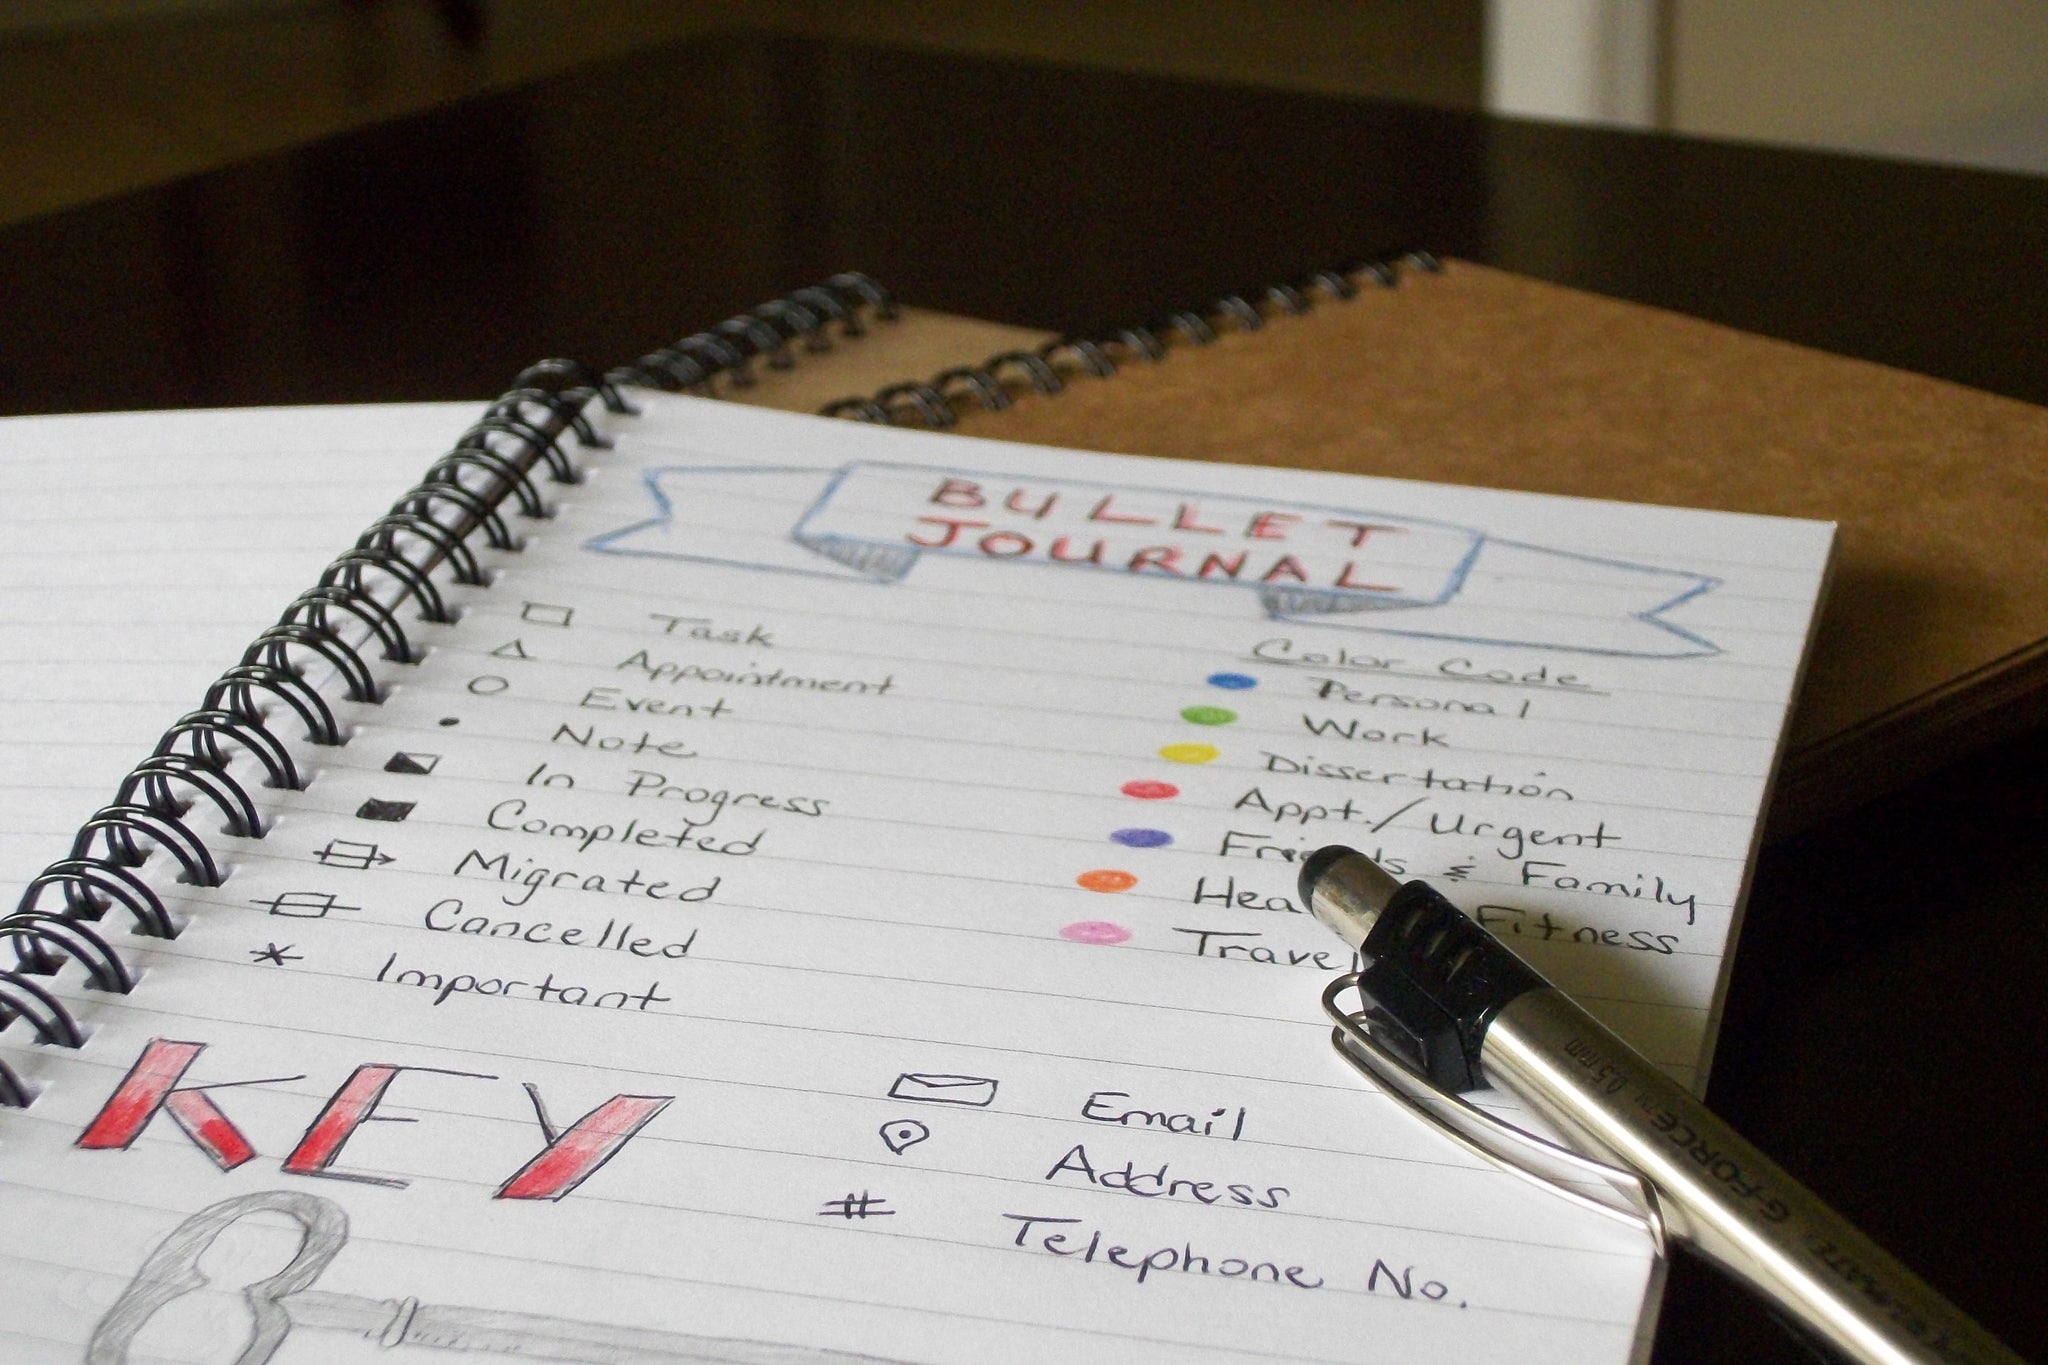 BULLET
JOURNAL
Task
Appointment
Event
Note
In Progress
Completed
Migrated
Cancelled
* Important
Color Code
Personal
Work
Dissertation
Appt./Urgent
Friends & Family
Fitness
Travel
KEY
Email
Address
# Telephone No.
G-FORCE™ 0.5mm